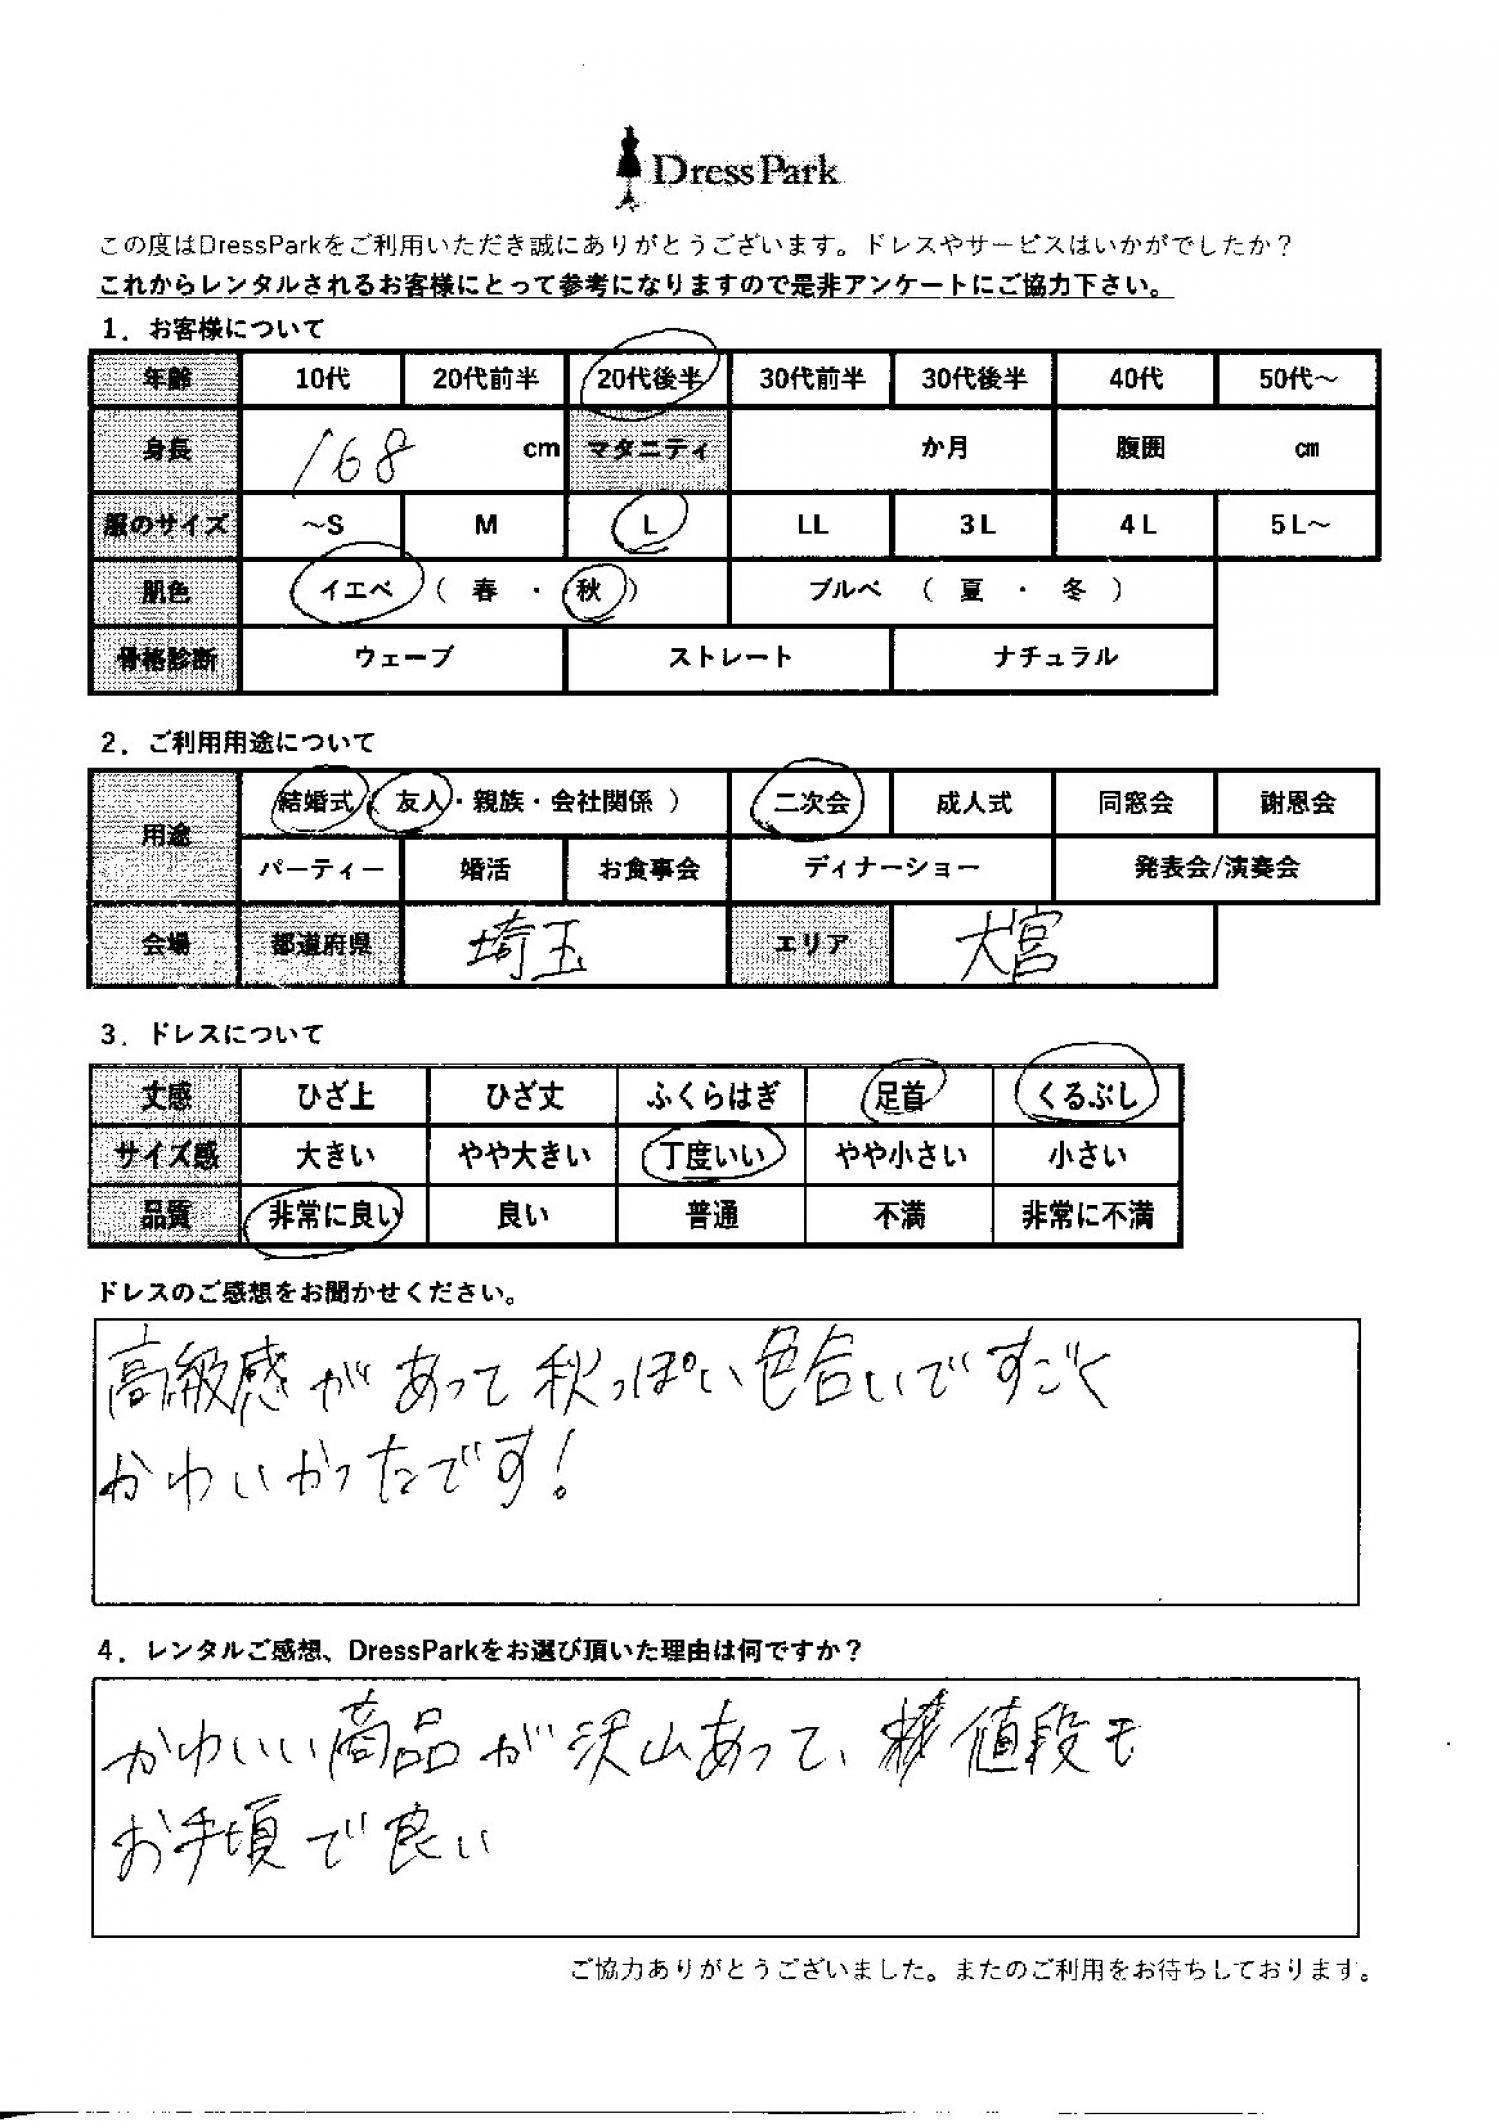 DressPark
この度はDressParkをご利用いただき誠にありがとうございます。ドレスやサービスはいかがでしたか？
これからレンタルされるお客様にとって参考になりますので是非アンケートにご協力下さい。
1．お客様について
年齢 10代 20代前半 20代後半 30代前半 30代後半 40代 50代～
身長 168 cm マタニティ か月 腹囲 ㎝
服のサイズ ～S M L LL 3L 4L 5L～
肌色 イエベ （ 春 ・ 秋 ） ブルベ （ 夏 ・ 冬 ）
骨格診断 ウェーブ ストレート ナチュラル
2．ご利用用途について
用途 結婚式（ 友人・親族・会社関係 ） 二次会 成人式 同窓会 謝恩会
パーティー 婚活 お食事会 ディナーショー 発表会/演奏会
会場 都道府県 埼玉 エリア 大宮
3．ドレスについて
丈感 ひざ上 ひざ丈 ふくらはぎ 足首 くるぶし
サイズ感 大きい やや大きい 丁度いい やや小さい 小さい
品質 非常に良い 良い 普通 不満 非常に不満
ドレスのご感想をお聞かせください。
高級感があって秋っぽい色合いですごく
かわいかったです！
4．レンタルご感想、DressParkをお選び頂いた理由は何ですか？
かわいい商品が沢山あって、値段も
お手頃で良い
ご協力ありがとうございました。またのご利用をお待ちしております。